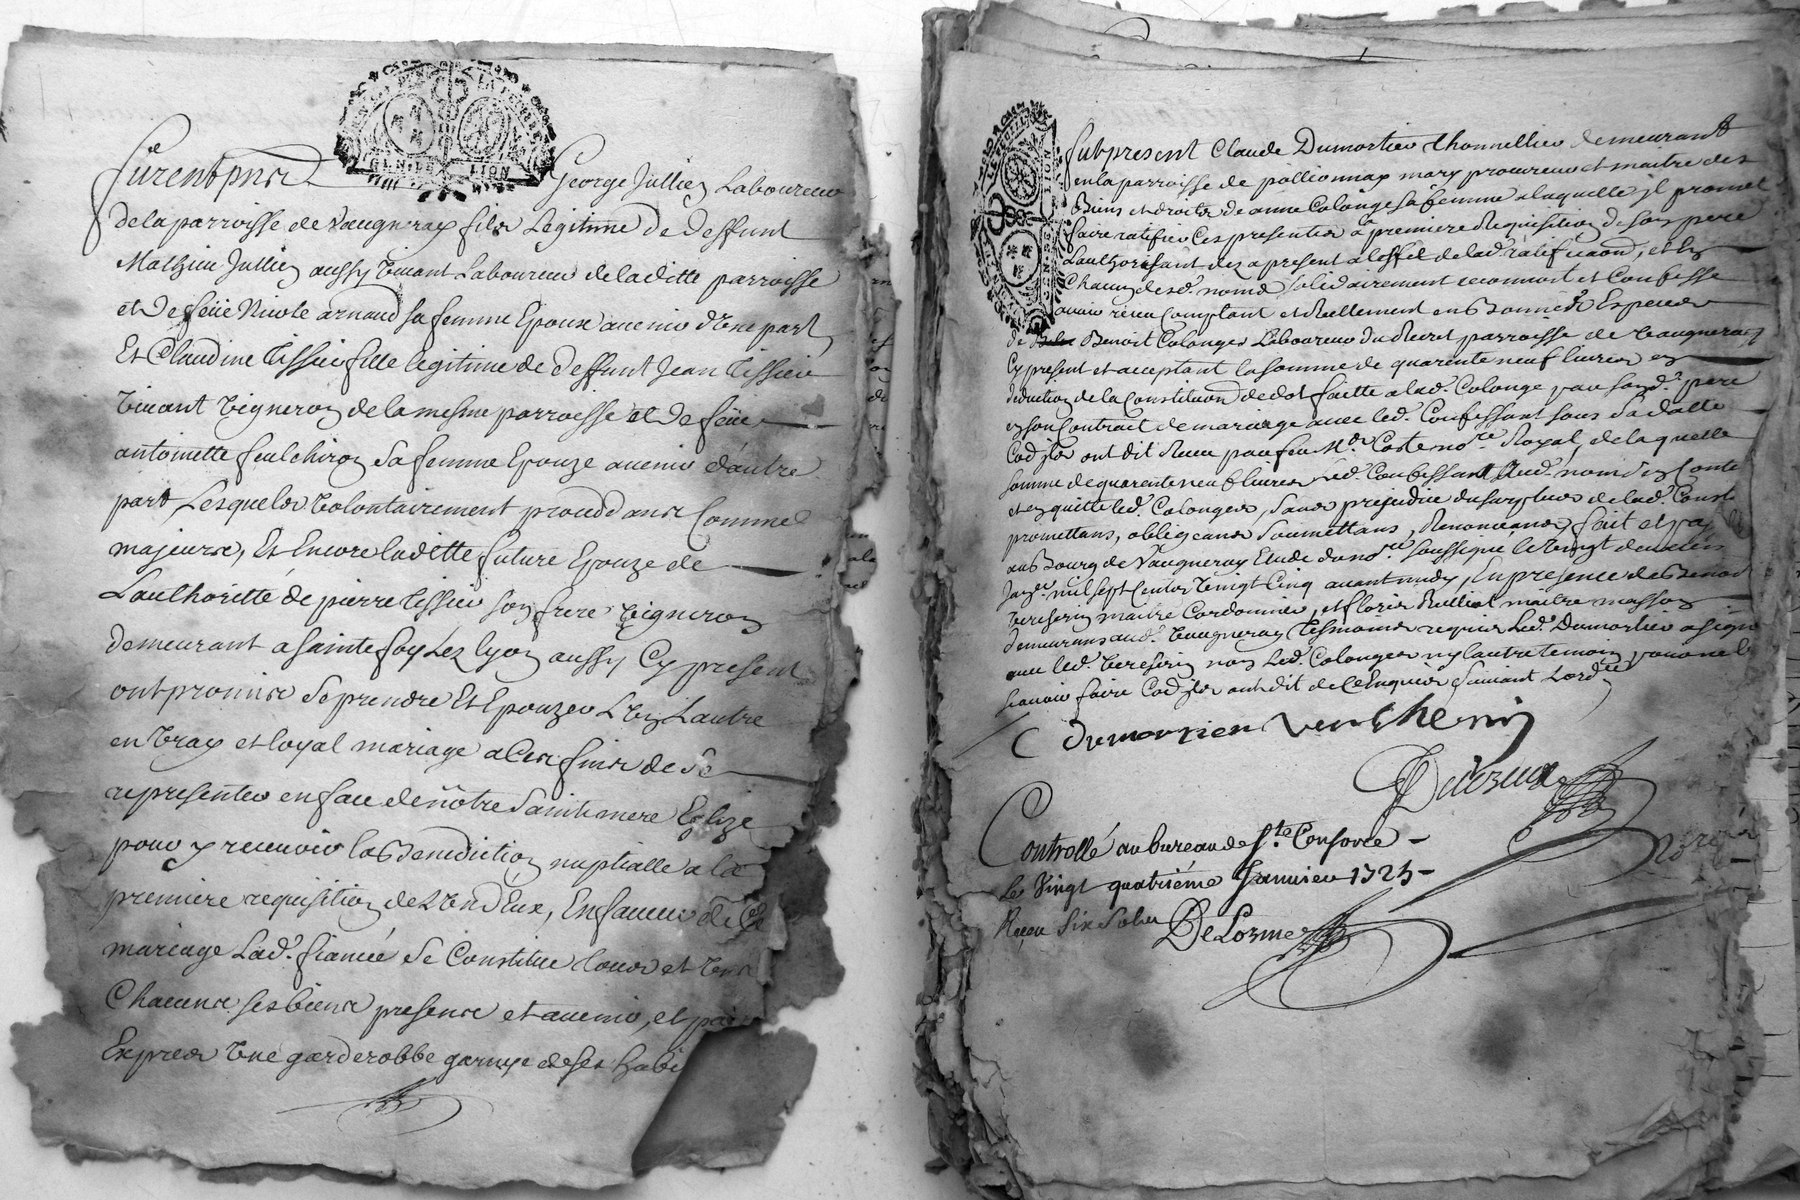 GENER LION
fürent pnts George Jullien Laboureur
de la parroisse de Vaugneray fils Légitime de deffunt
Mathieu Jullien aussy vivant Laboureur de laditte parroisse
et de feüe Nicole arnaud sa femme Epoux avenir d'Une part
Et Claudine Tissier fille legitime de deffunt Jean Tissier
vivant vigneron de la mesme parroisse et de feüe
antoinette feulchiron sa femme Epouze avenir d'autre
part Lesquels volontairement comme
majeurs, Et Encore laditte future Epouze de
L'authorité de pierre Tissier son frere vigneron
demeurant a Sainte foy Lez lyon aussy Cy present
ont promis se prendre Et Epouzer L'Un L'autre
en vray et loyal mariage a Ces fins de se
representer en face de nôtre Sainte mere Eglize
pour y recevoir la Benediction nuptialle a la
premiere requisition de L'Un d'Eux, En faveur de Ce
mariage Lad.e fiancée se Constitue tous et Uns
Chacuns ses biens presens et avenir, et par
Exprés Une garderobbe garnye de ses habi
GENER LION
fut present Claude Dumortier thonnellier demeurant
en la parroisse de pollionnay mary procureur et maitre des
Biens et droits de anne Colonge sa femme a laquelle il promet
faire ratifier Ces presentes a premiere Requisition de son pere
L'authorisant dez a present a l'effet de lad. ratificaon, et En
Chacun desd. noms solidairement reconnoit et Confesse
avoir reçu Comptant et Reellement en Bonnes Especes
de Benoit Colonges Laboureur dudit parroisse de Vaugneray
Cy present et acceptant la somme de quarente neuf livres en
deduction de la Constitution de dot faitte a lad. Colonge par sond. pere
en son Contrat de mariage avec led. Confessant sous sa datte
ont dit Receu par feu Mr. Coste no.re Royal, de laquelle
somme de quarente neuf livres Led. Confessant aud. nom s'en Conte
et en quitte led. Colonges, sans prejudice du surplus de lad. Const
promettans, obligeans soumettans, Renonceans fait et pa
au Bourg de Vaugneray Etude du no.re soussigné le vingt deux
Janv.er mil sept cents vingt Cinq avant midy, En presence de Benoi
maitre Cordonnier, et maitre masson
demeurans aud. Vaugneray Tesmoins requis Led. Dumortier a signé
avec led. non Led. Colonges ny l'autre temoin pour ne le
scavoir faire ont dit de Ce Enquis suivant L'ord.ce
C dumortier
Delorme
Controllé au bureau de S.te Consorce
Le Vingt quatrième Janvier 1725
Reçeu Six sols DeLorme